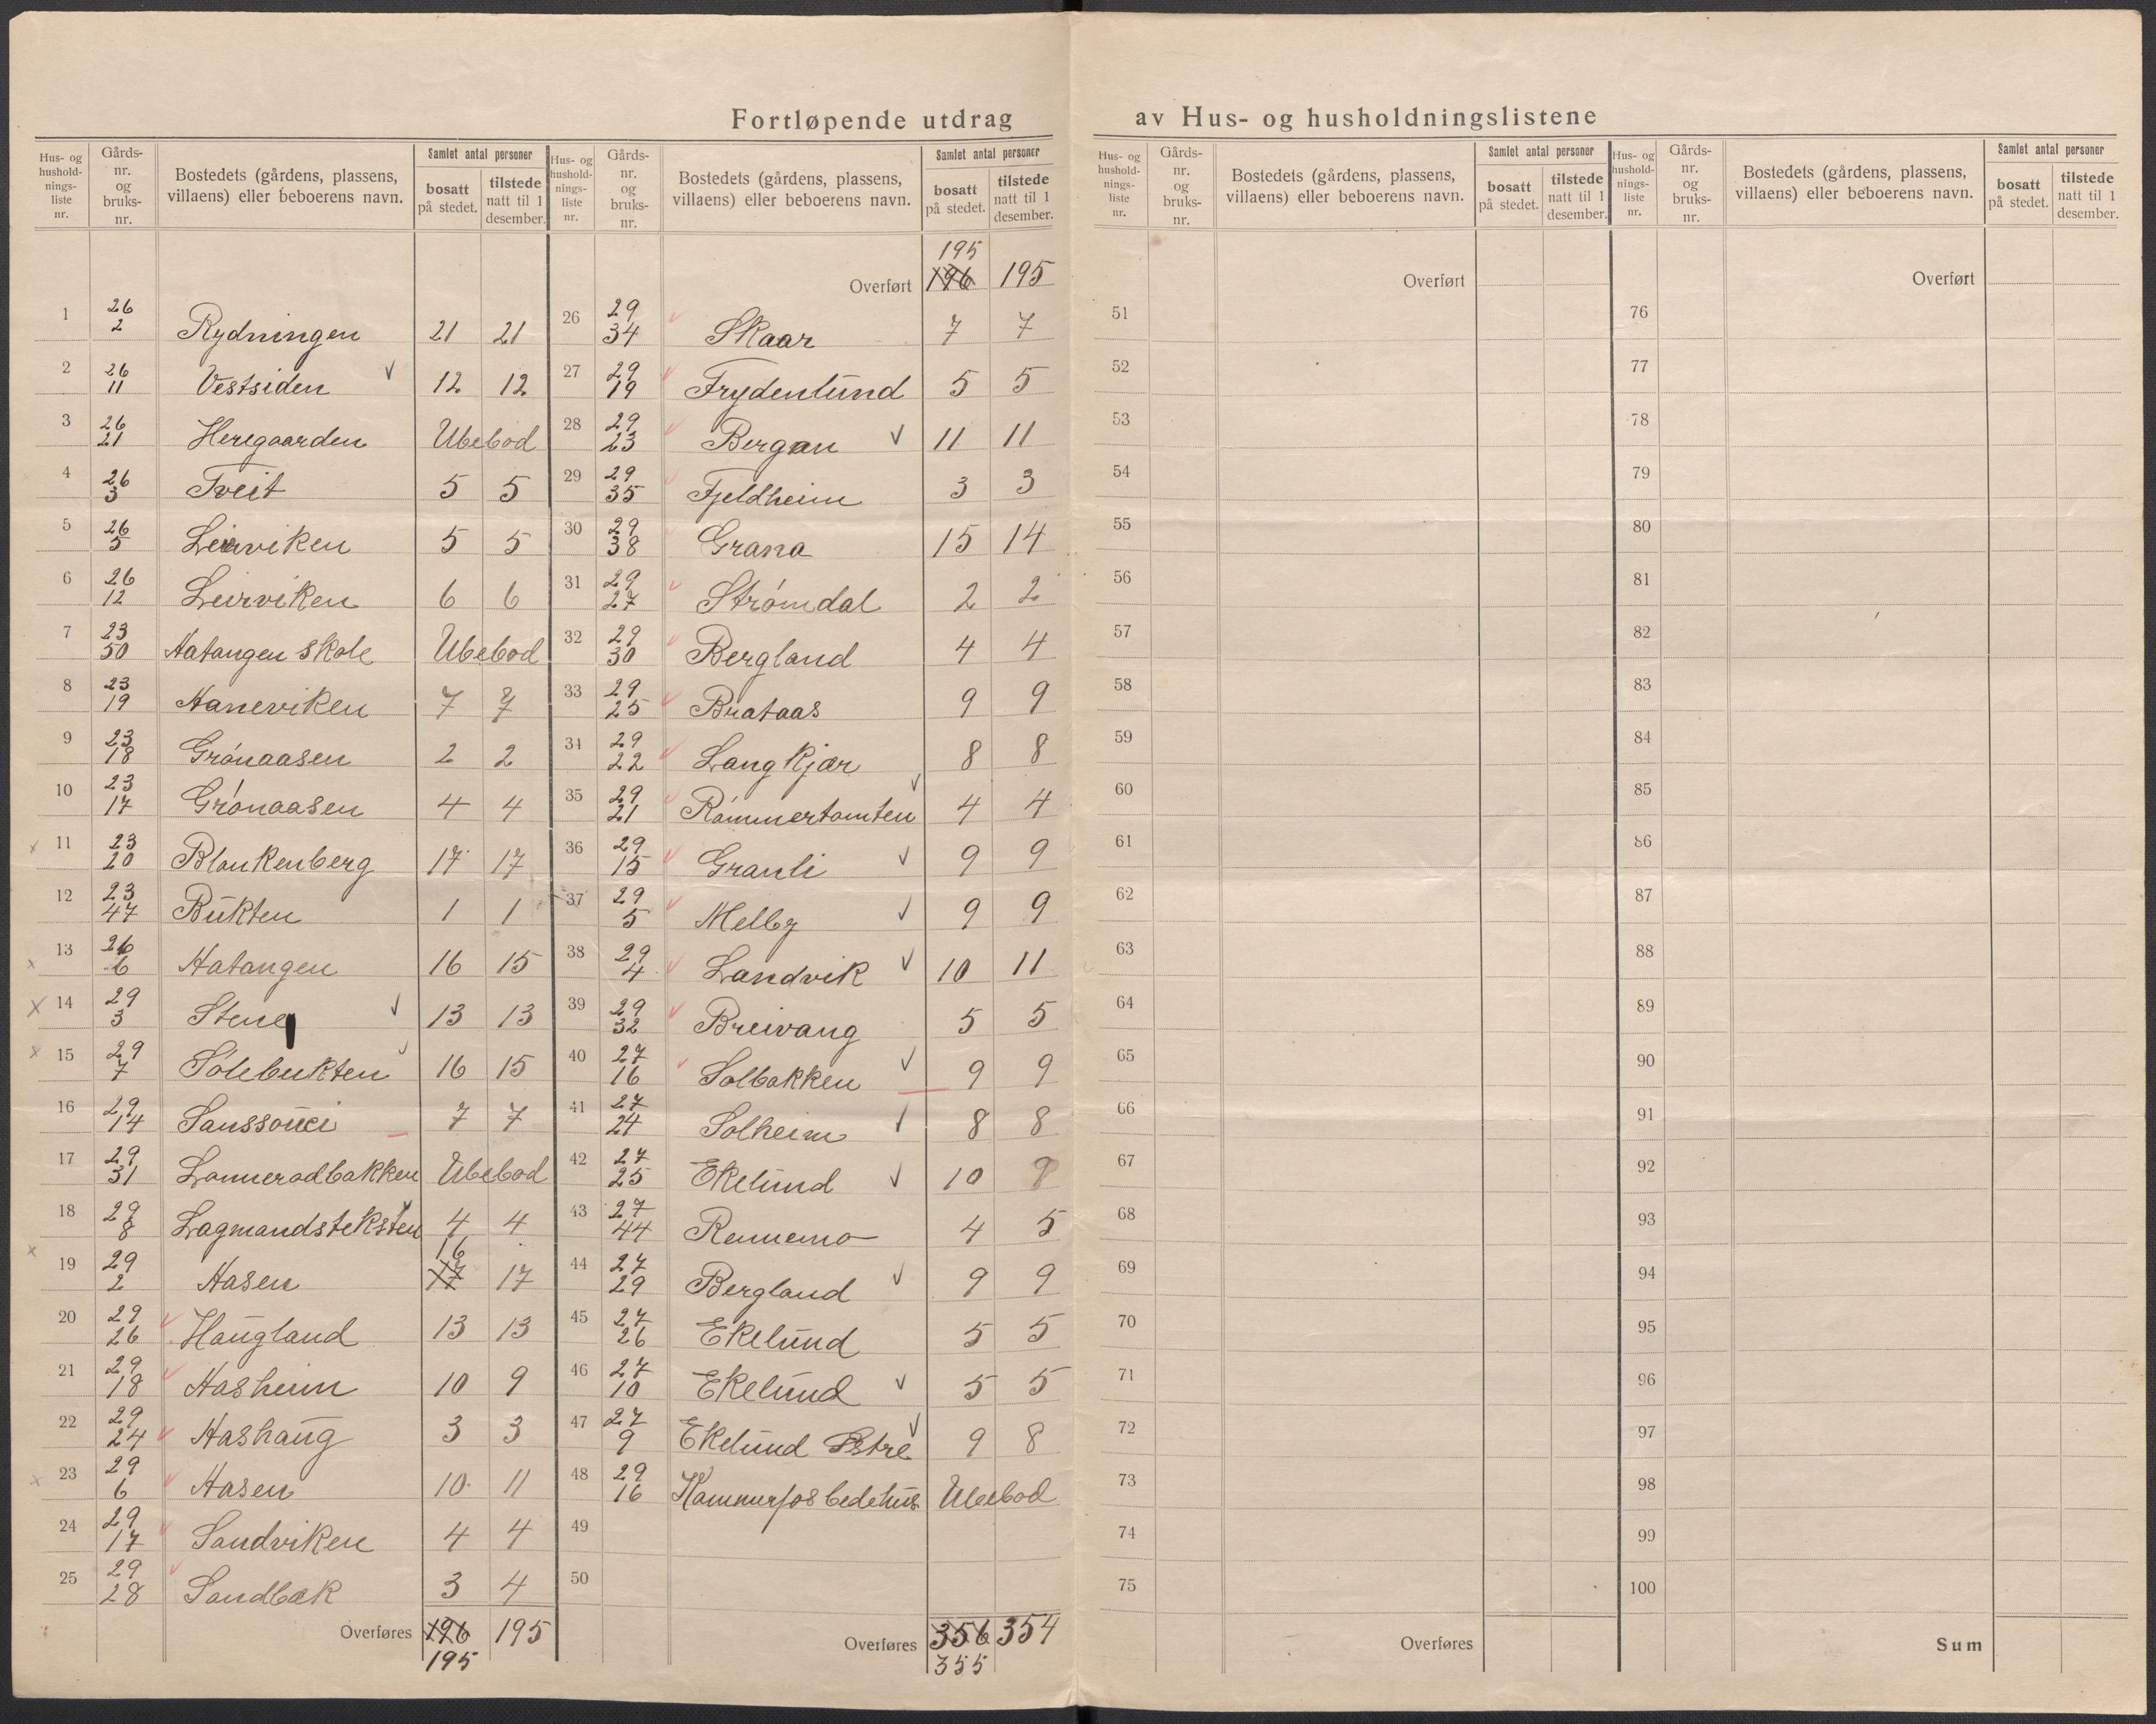 Fortløpende utdrag av Hus- og husholdningslistene
Hus- og husholdnings-liste nr. Gårds-nr. og bruks-nr. Bostedets (gårdens, plassens, villaens) eller beboerens navn. Samlet antal personer bosatt på stedet. tilstede natt til 1 desember.
1 26 2 Rydningen 21 21
2 26 11 Vestsiden √ 12 12
3 26 21 Heregaarden Ubebod
4 26 3 Tveit 5 5
5 26 5 Leirviken 5 5
6 26 12 Leirviken 6 6
7 23 50 Aatangen skole Ubebod
8 23 19 Haneviken 7 7
9 23 18 Grønaasen 2 2
10 23 17 Grønaasen 4 4
x 11 23 20 Blankenberg 17 17
12 23 47 Bukten 1 1
x 13 26 6 Aatangen 16 15
x 14 29 3 Stene √ 13 13
x 15 29 7 Sølebukten √ 16 15
16 29 14 Sanssouci 7 7
17 29 31 Lanneradbakken Ubebod
18 29 8 Lagmandsteksten √ 4 4
x 19 29 2 Aasen 16 17 17
20 29 26 √ Haugland 13 13
21 29 18 √ Aasheim 10 9
22 29 24 √ Aashaug 3 3
x 23 29 6 √ Aasen 10 11
24 29 17 √ Sandviken 4 4
25 29 28 √ Sandbæk 3 4
Overføres 196 195
195
Hus- og husholdnings-liste nr. Gårds-nr. og bruks-nr. Bostedets (gårdens, plassens, villaens) eller beboerens navn. Samlet antal personer bosatt på stedet. tilstede natt til 1 desember.
195
Overført 196 195
26 29 34 √ Skaar 7 7
27 29 19 √ Frydenlund 5 5
28 29 23 √ Bergan √ 11 11
29 29 35 √ Fjeldheim 3 3
30 29 38 √ Grana 15 14
31 29 27 √ Strømdal 2 2
32 29 30 √ Bergland 4 4
33 29 25 √ Brataas 9 9
34 29 22 √ Langkjær 8 8
35 29 21 √ Rømmertomten √ 4 4
36 29 15 √ Granli √ 9 9
37 29 5 √ Melby √ 9 9
38 29 4 √ Landvik √ 10 11
39 29 32 √ Breivang 5 5
40 27 16 √ Solbakken √ 9 9
41 27 24 Solheim √ 8 8
42 27 25 Ekelund √ 10 9
43 27 44 Rennemo 4 5
44 27 29 Bergland √ 9 9
45 27 26 Ekelund 5 5
46 27 10 Ekelund √ 5 5
47 27 9 Ekelund Østre √ 9 8
48 29 16 Hammerfos bedehus Ubebod
49
50
Overføres 356 354
355
Hus- og husholdnings-liste nr. Gårds-nr. og bruks-nr. Bostedets (gårdens, plassens, villaens) eller beboerens navn. Samlet antal personer bosatt på stedet. tilstede natt til 1 desember.
Overført
51
52
53
54
55
56
57
58
59
60
61
62
63
64
65
66
67
68
69
70
71
72
73
74
75
Overføres
Hus- og husholdnings-liste nr. Gårds-nr. og bruks-nr. Bostedets (gårdens, plassens, villaens) eller beboerens navn. Samlet antal personer bosatt på stedet. tilstede natt til 1 desember.
Overført
76
77
78
79
80
81
82
83
84
85
86
87
88
89
90
91
92
93
94
95
96
97
98
99
100
Sum